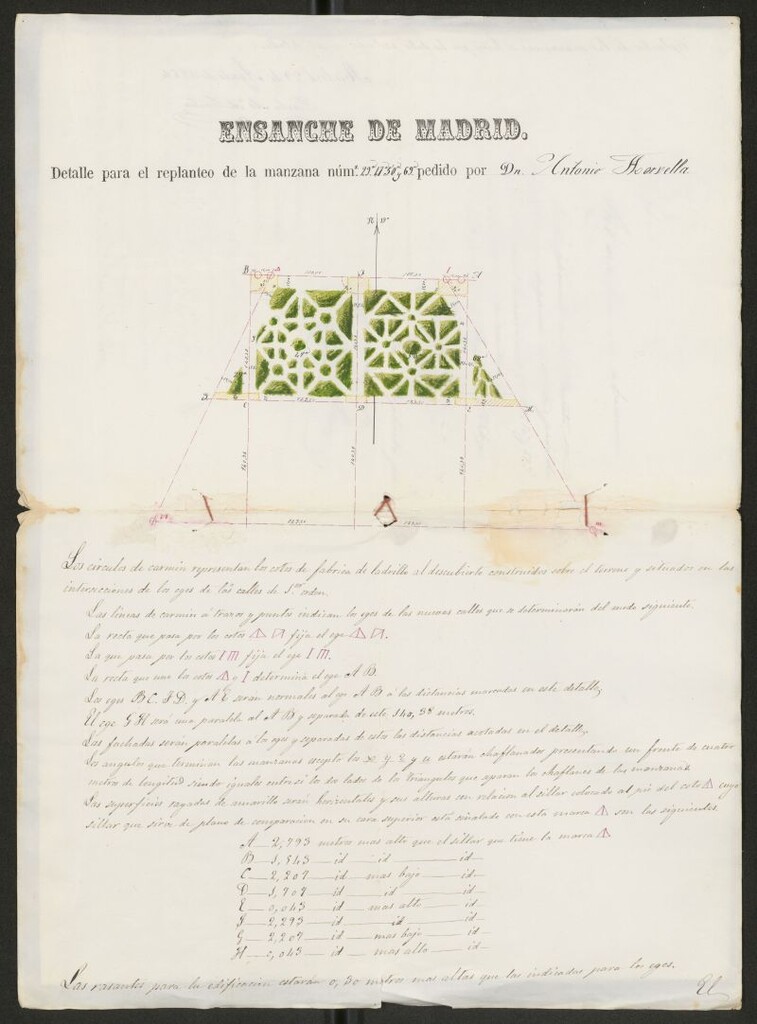 ENSANCHE DE MADRID.
Detalle para el replanteo de la manzana núm. pedido por Dn. Antonio
N
B
A
C
D
E
H
Los circulos de carmin representan los cotos de fabrica de ladrillo al descubierto construidos sobre el terreno y situados en las
intersecciones de los ejes de las calles de 1er orden.
Las lineas de carmin á trazos y puntos indican los ejes de las nuevas calles que se determinarán del modo siguiente.
La recta que pasa por los cotos fija el eje
La que pasa por los cotos I III fija el eje I III.
La recta que une la cotos y I determina el eje A B.
Los ejes B C, J D, y A E seran normales al eje A B á las distancias marcadas en este detalle,
El eje G H será una paralela al A B y separada de este 140,38 metros.
Las fachadas serán paralelas á los ejes y separadas de estos las distancias acotadas en el detalle,
Los angulos que terminan las manzanas escepto los x y z y u estarán chaflanados presentando un frente de cuatro
metros de longitud siendo iguales entre si los dos lados de los triangulos que separan los chaflanes de las manzanas
Las superficies rayadas de amarillo serán horizontales y sus alturas con relacion al sillar colocado al pie del coto cuyo
sillar que sirve de plano de comparacion en su cara superior está señalado con esta marca son las siguientes
A 2,793 metros mas alto que el sillar que tiene la marca
B 1,543 id id id
C 2,207 id mas bajo id
D 1,707 id id id
E 0,043 id mas alto id
J 2,293 id id
G 2,207 id mas bajo id
H 0,043 id mas alto id
Las rasantes para la edificacion estarán 0,30 metros mas altas que las indicadas para los ejes.
El